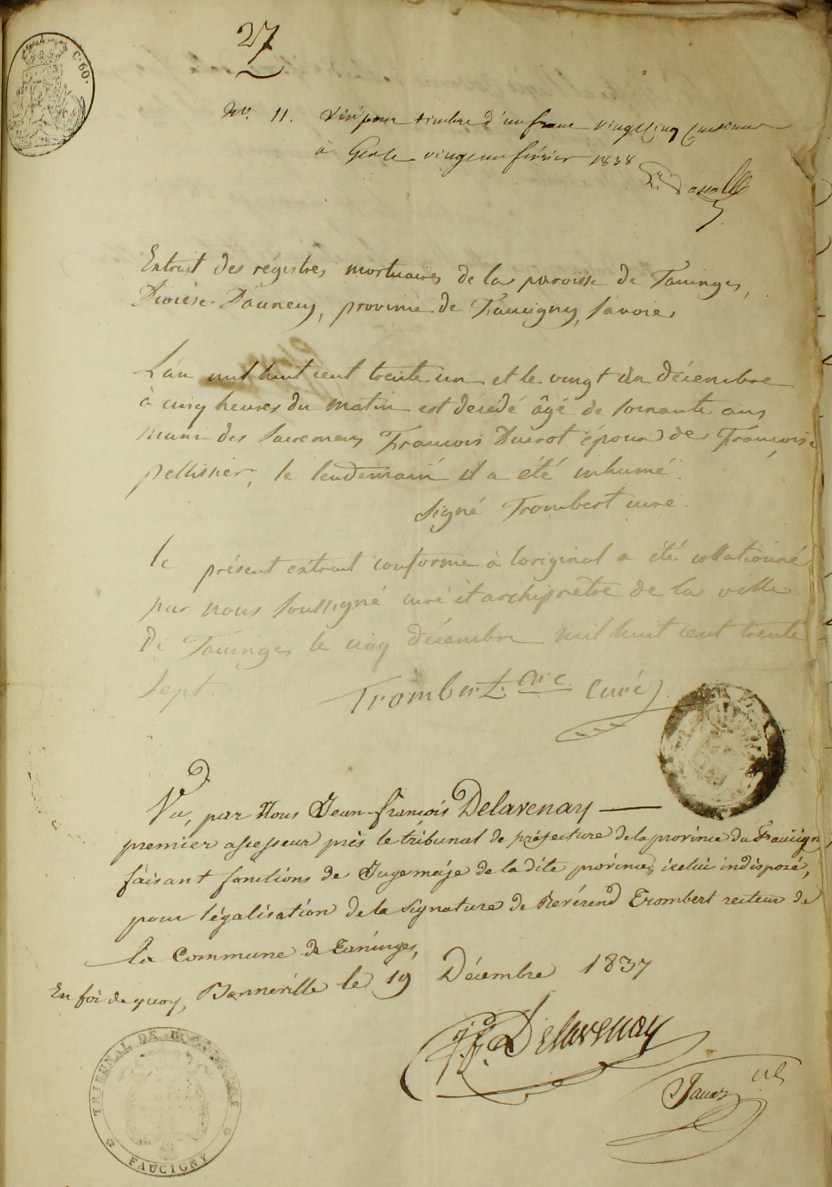 C. 60.
27
N°. 11. Visé pour timbre d'un franc vingt cinq centimes
à vingt un février 1838
Extrait des régistres mortuaires de la paroisse de Taninges,
Diocèse D'annecy, province de Faucigny, Savoie
L'an mil huit cent trente un et le vingt un décembre
à cinq heures du matin est décédé âgé de soixante ans
muni des Sacremens François Ducrot époux de Françoise
pellissier, le lendemain il a été inhumé.
Signé Trombert curé.
le présent extrait conforme à loriginal a été collationné
par nous soussigné curé et archiprêtre de la ville
de Taninges le cinq décembre mil huit cent trente
sept.
Trombert. Curé
Vu, par Nous Jean-françois Delavenay —
premier assesseur près le tribunal de préfecture de la province du Faucigny,
faisant fonctions de Jugemaje de la dite province, icelui indisposé,
pour légalisation de la signature de Reverend Trombert recteur de
la Commune de Taninges,
En foi de quoy, Bonneville le 19 Décembre 1837
J. f. Delavenay
TRIBUNAL DE
FAUCIGNY